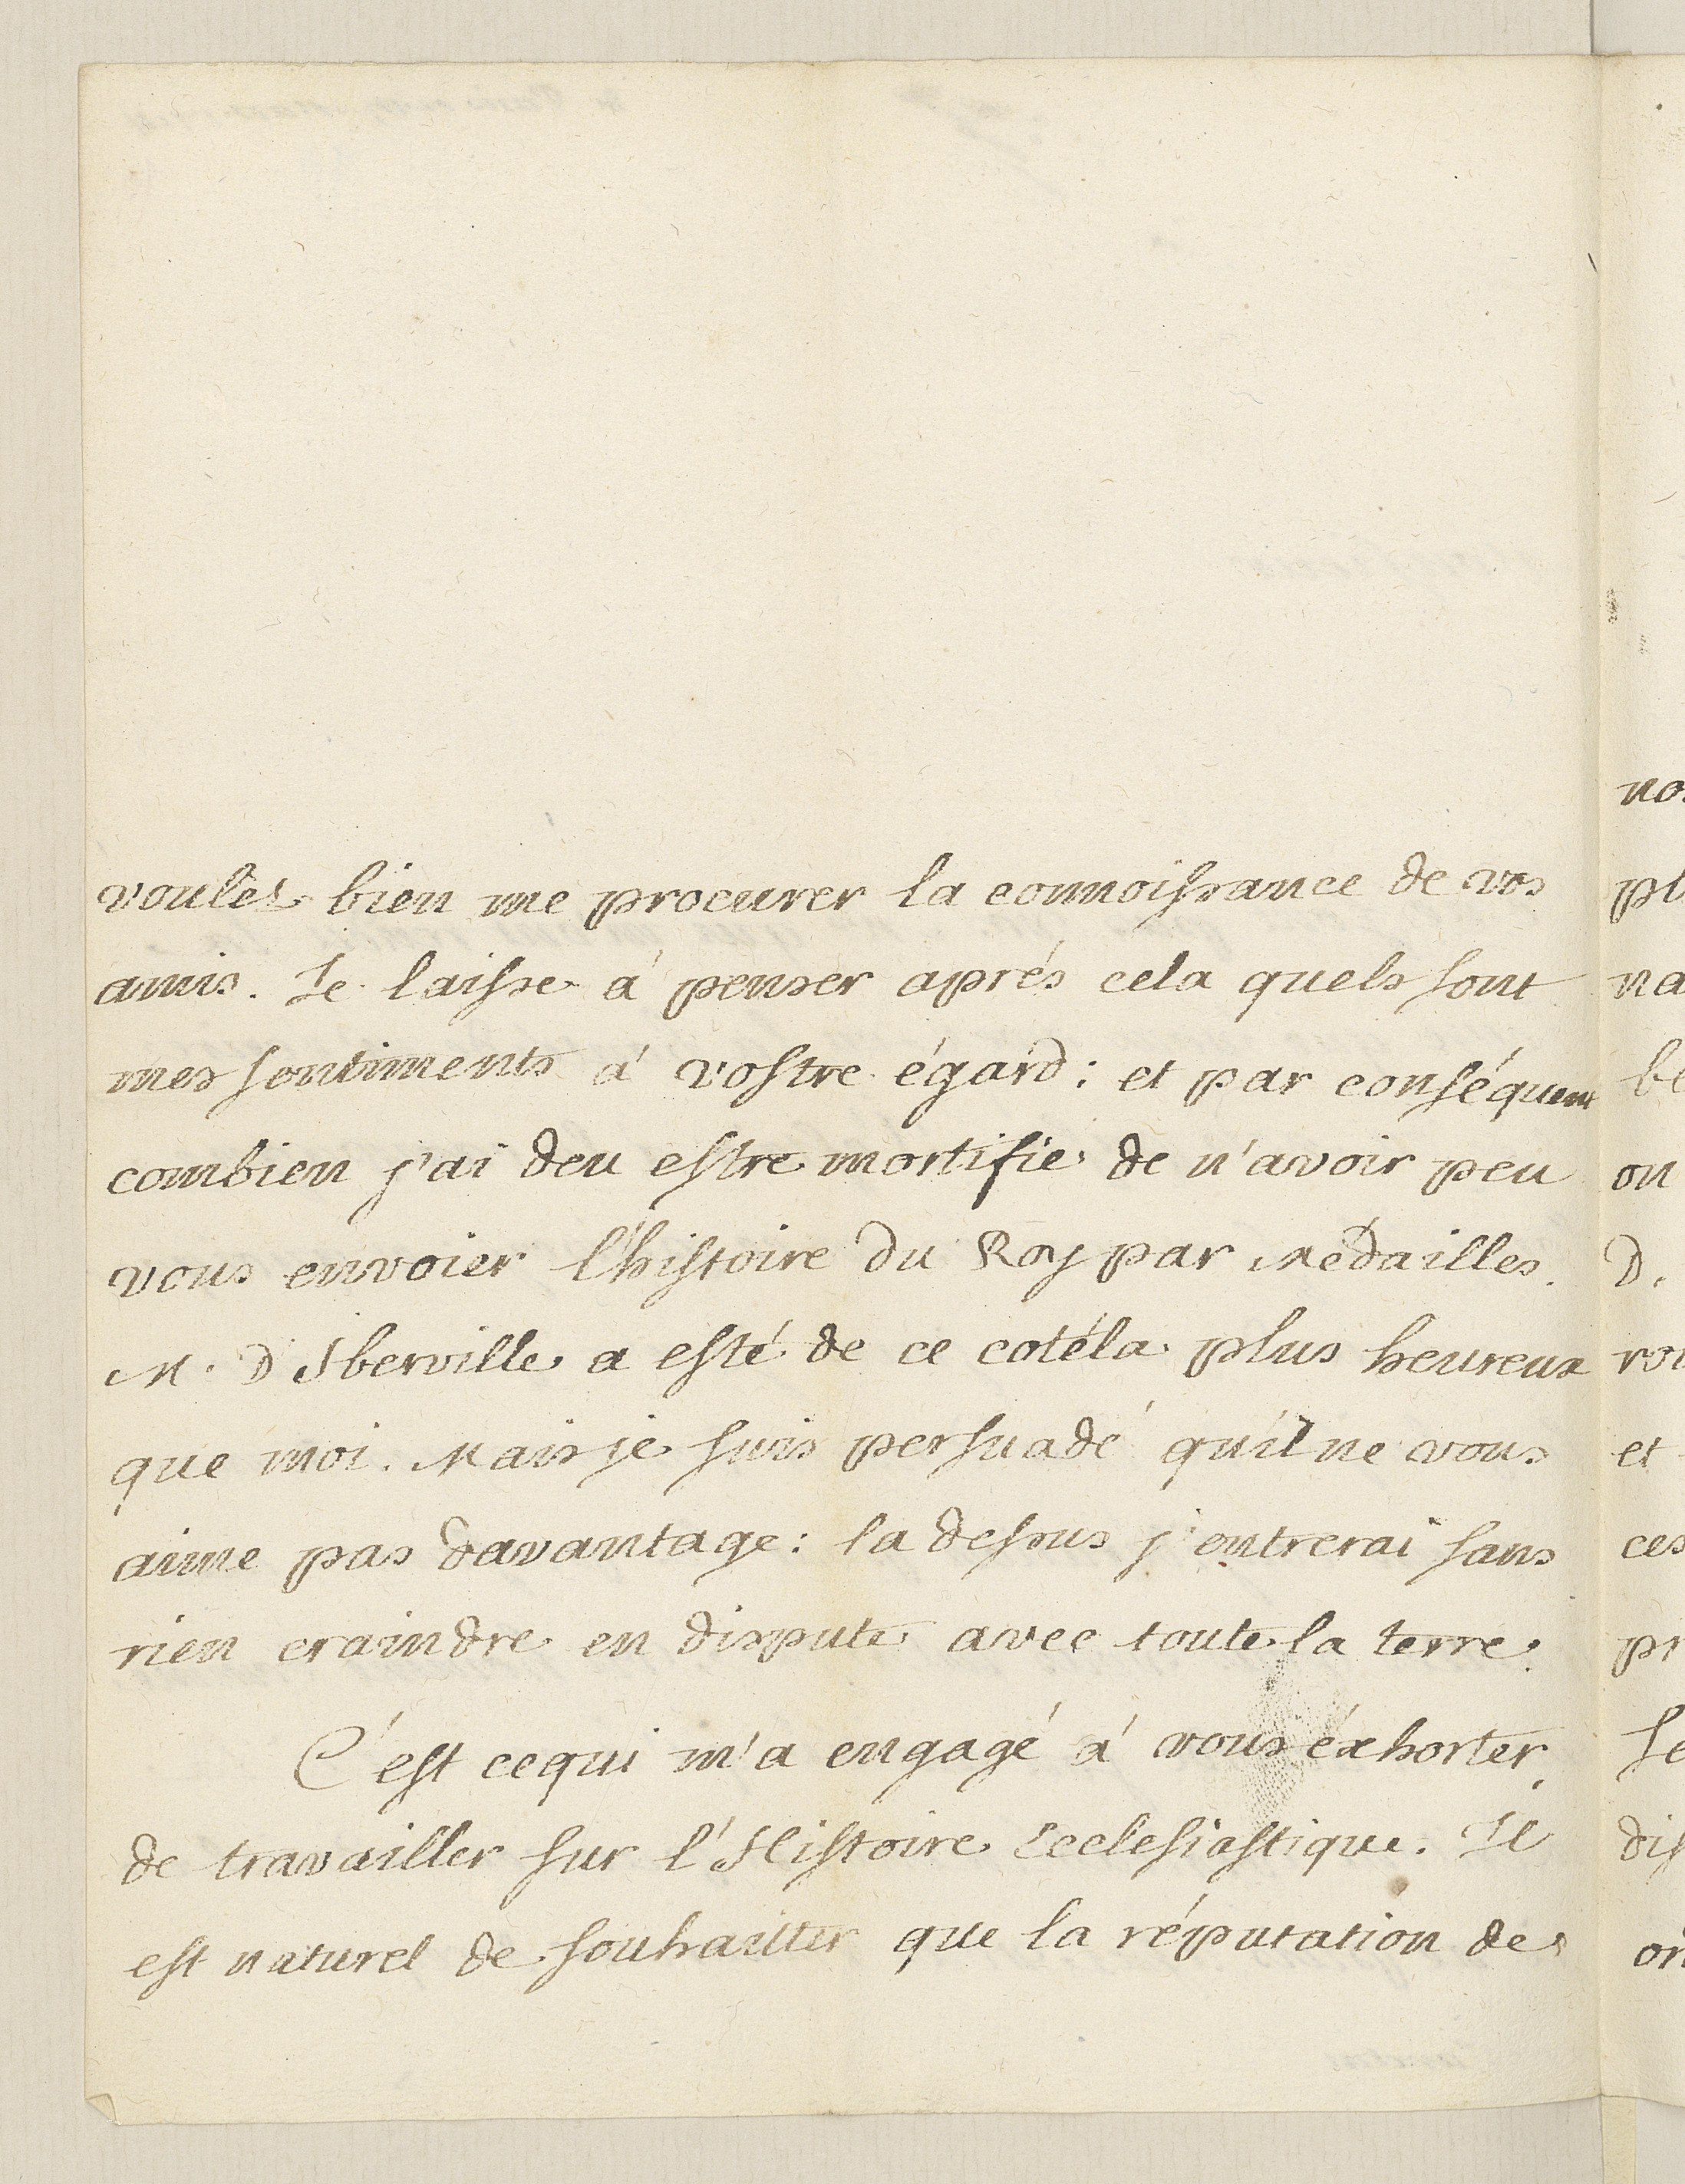 voulez bien me procurer la connoissance de vos
amis. Je laisse à penser aprés cela quels sont
mes sentiments à vostre égard: et par conséquent
combien j'ai deu estre mortifie de n'avoir peu
vous envoier l'histoire du Roy par Medailles.
M. D'Iberville a esté de ce cotéla plus heureux
que moi. Mais je suis persuadé qu'il ne vous
aime pas davantage: la dessus j'entrerai sans
rien craindre en dispute avec toute la terre.
C'est cequi m'a engagé à vous éxhorter
de travailler sur l'Histoire Ecclesiastique. Il
est naturel de souhaitter que la réputation de
no
pl
na
be
on
D.
rou
et
ces
pr
Je
dis
on